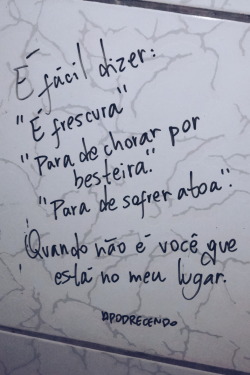 É fácil dizer:
"É frescura"
"Para de chorar por
besteira."
"Para de sofrer atoa".
Quando não é você que
está no meu lugar.
APODRECENDO